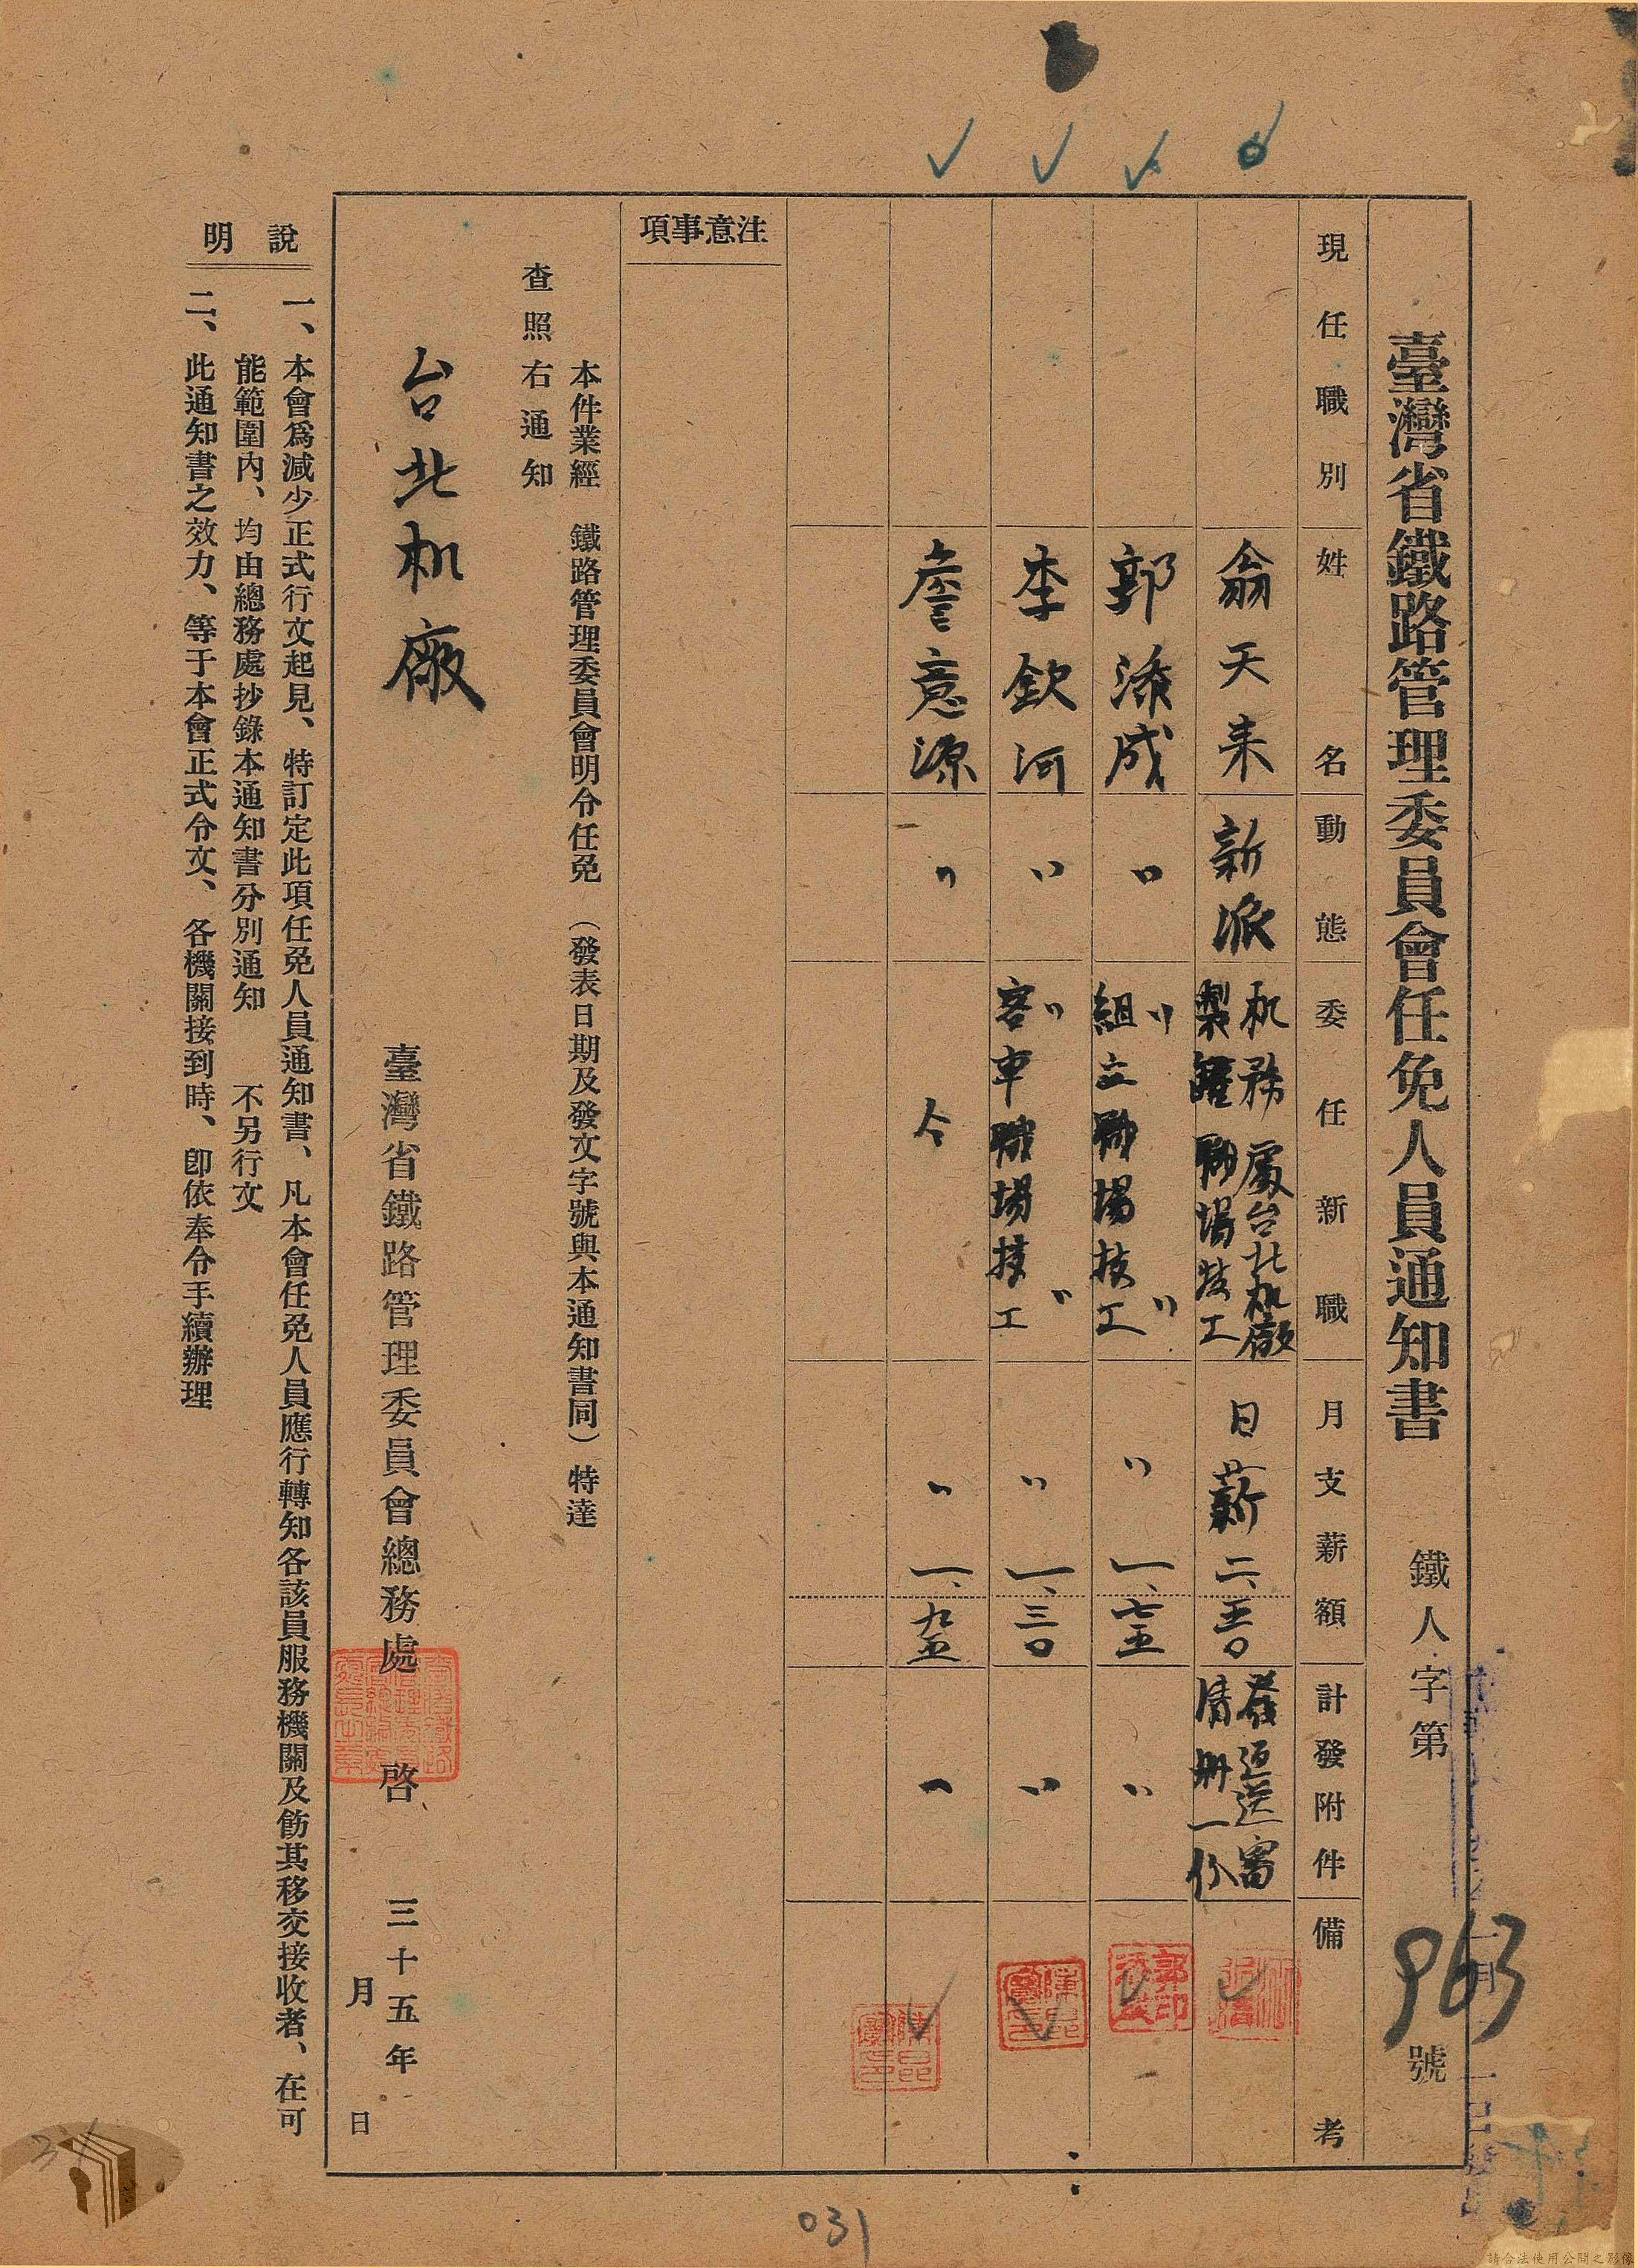 臺灣省鐵路管理委員會任免人員通知書 鐵人字第 963 號
現任職別 姓名 動態 委任新職 月支薪額 計發附件 備考
翁天来 新派 机務處台北机廠 製罐職場技工 日薪 二、五〇 發還送審 清冊一份
郭添成 〃 〃 組立職場技工 〃 〃 一、七五 〃
李欽河 〃 〃 客車職場技工 〃 〃 一、三〇 〃
詹意源 〃 仝 〃 一、九五 〃
注意事項
本件業經 鐵路管理委員會明令任免（發表日期及發文字號與本通知書同）特達
查照右通知
台北机廠
臺灣省鐵路管理委員會總務處 啓 三十五年 月 日
說明
一、本會爲減少正式行文起見、特訂定此項任免人員通知書、凡本會任免人員應行轉知各該員服務機關及飭其移交接收者、在可
能範圍內、均由總務處抄錄本通知書分別通知 不另行文
二、此通知書之效力、等于本會正式令文、各機關接到時、卽依奉令手續辦理
031
31
請合法使用公開之影像